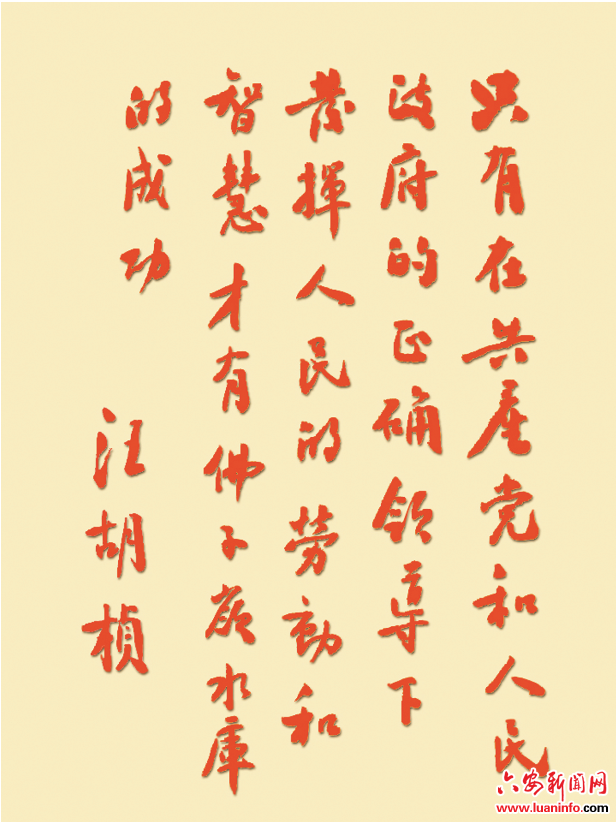 只有在共產党和人民
政府的正确領導下
發揮人民的劳動和
智慧才有佛子嶺水庫
的成功
汪胡楨
六安新闻网
www.luaninfo.com